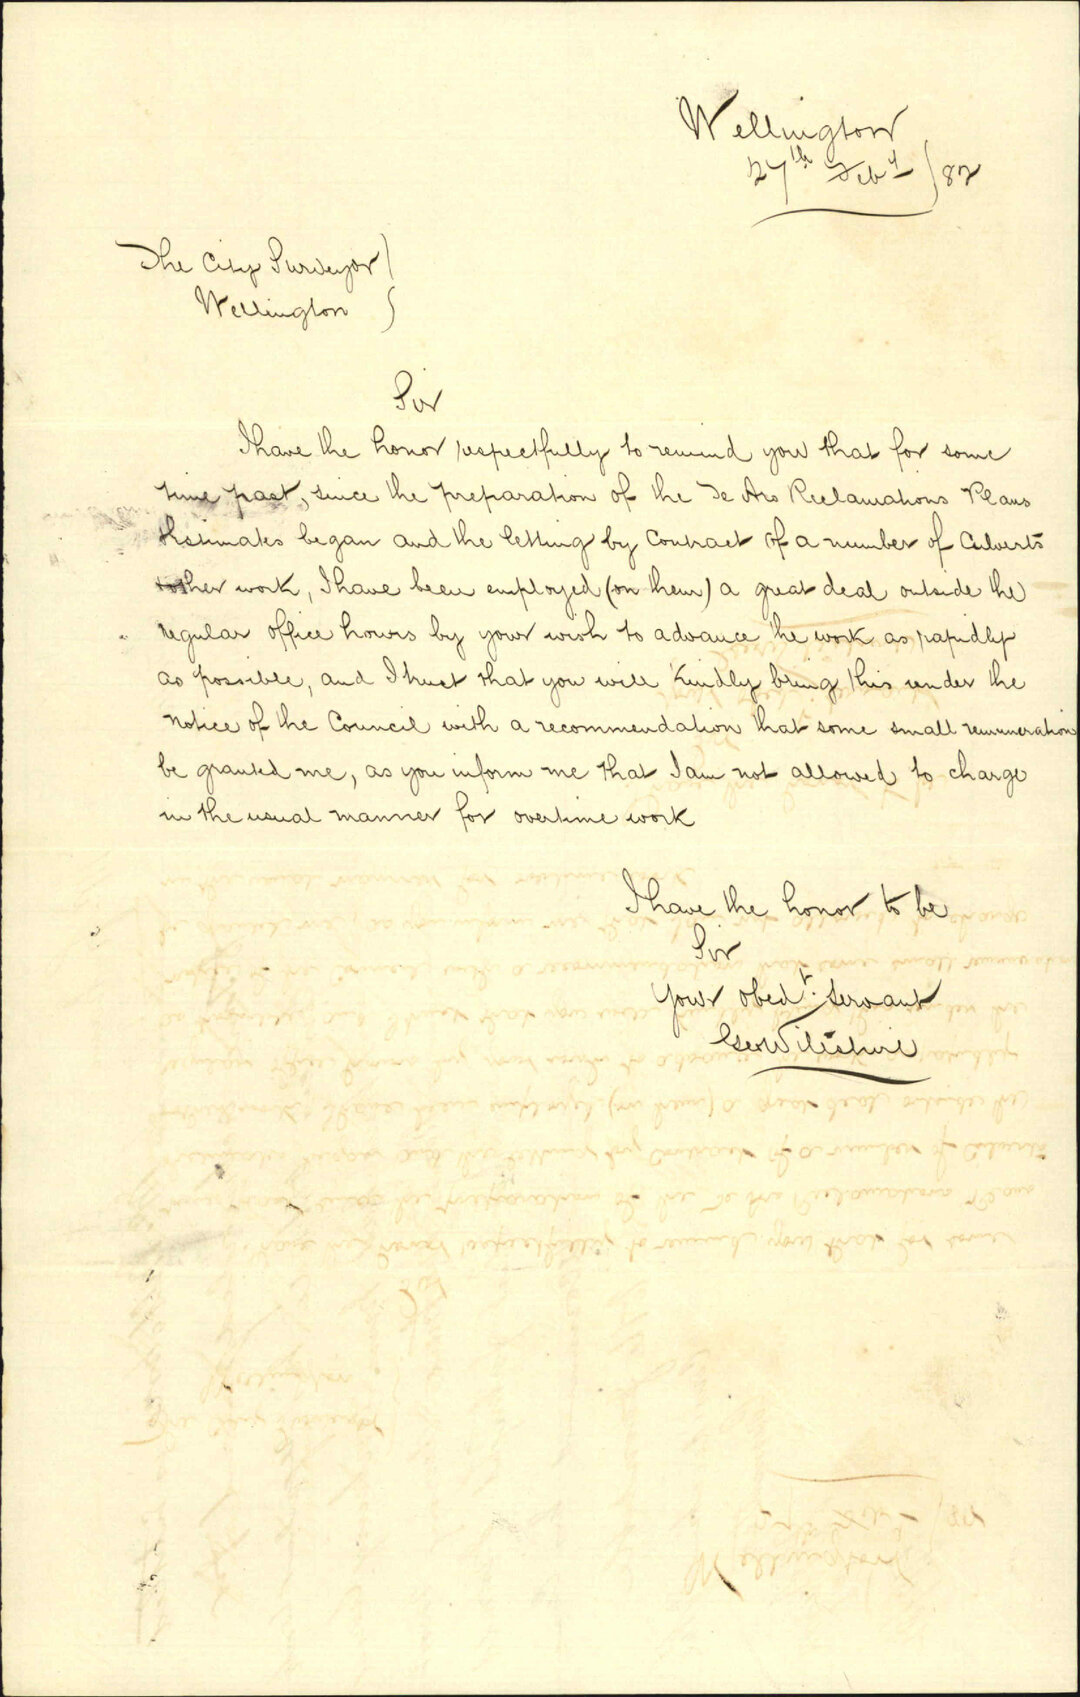 Wellington
27th Feby /82
The City Surveyor
Wellington
Sir
I have the honor respectfully to remind you that for some
time past, since the preparation of the Te Aro Reclamations Plans
& Estimates began and the letting by Contract of a number of Culverts
& other work, I have been employed (on them) a great deal outside the
regular office hours by your wish to advance the work as rapidly
as possible, and I trust that you will kindly bring this under the
notice of the Council with a recommendation that some small remuneration
be granted me, as you inform me that I am not allowed to charge
in the usual manner for overtime work
I have the honor to be
Sir
Your obedt. servant
Geo Wiltshire